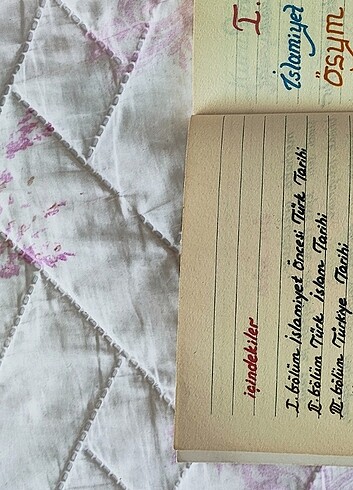 I.
İslamiyet
ÖSYM
içindekiler
I. bölüm İslamiyet Öncesi Türk Tarihi
II. bölüm Türk İslam Tarihi
III. bölüm Türkiye Tarihi